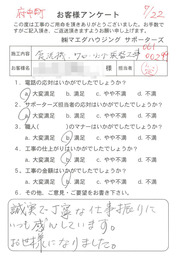 府中町
9/22
お客様アンケート
この度は工事のご用命を頂きありがとうございました。お手数で
すがご記入頂き、ご返送頂きますようお願い申し上げます。
㈱マエダハウジング サポーターズ
施工内容
お名前
様
担当者
1. 電話の応対はいかがでしたでしょうか？
a. 満足 b. 満足 c. やや不満 d. 不満
2. サポーターズ担当者の応対はいかがでしたでしょうか？
a. 大満足 b. 満足 c. やや不満 d. 不満
3. 職人( )のマナーはいかがでしたでしょうか？
a. 大満足 b. 満足 c. やや不満 d. 不満
4. 工事の仕上がりはいかがでしたでしょうか？
a. 大満足 b. 満足 c. やや不満 d. 不満
5. 工事の金額はいかがでしたでしょうか？
a. 大満足 b. 満足 c. やや不満 d. 不満
6. その他、ご意見・ご要望をお書き下さい。
誠実で丁寧な仕事振りに
いつも感心しています。
お世話になりました。